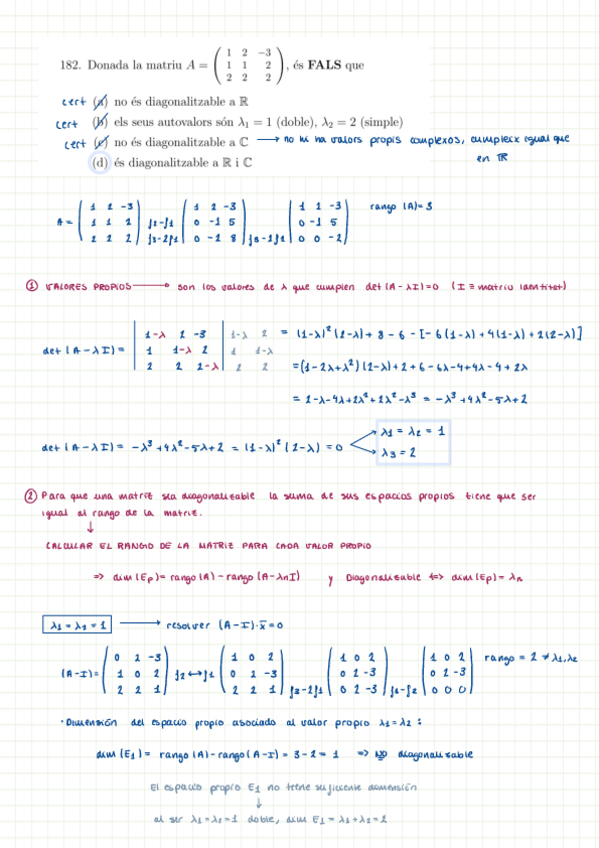 182. Donada la matriu A = ( 1 2 −3 ; 1 1 2 ; 2 2 2 ), és FALS que
cert (a) no és diagonalitzable a ℝ
cert (b) els seus autovalors són λ₁ = 1 (doble), λ₂ = 2 (simple)
cert (c) no és diagonalitzable a ℂ → no hi ha valors propis complexos, cumpleix igual que en ℝ
(d) és diagonalitzable a ℝ i ℂ
A = ( 1 2 -3 ; 1 1 2 ; 2 2 2 ) f2-f1 f3-2f1 ( 1 2 -3 ; 0 -1 5 ; 0 -2 8 ) f3-2f2 ( 1 2 -3 ; 0 -1 5 ; 0 0 -2 ) rango (A)=3
① VALORES PROPIOS → son los valores de λ que cumplen det (A - λI)=0 (I ≡ matriu identitat)
det (A-λI) = | 1-λ 2 -3 ; 1 1-λ 2 ; 2 2 2-λ | 1-λ 2 ; 1 1-λ ; 2 2 = (1-λ)²(2-λ) + 8 - 6 - [-6(1-λ) + 4(1-λ) + 2(2-λ)]
= (1-2λ+λ²)(2-λ) + 2 + 6 - 6λ - 4 + 4λ - 4 + 2λ
= 2-λ-4λ+2λ²+2λ²-λ³ = -λ³+4λ²-5λ+2
det (A-λI) = -λ³+4λ²-5λ+2 = (1-λ)²(2-λ) = 0
λ1 = λ2 = 1
λ3 = 2
② Para que una matriz sea diagonalizable la suma de sus espacios propios tiene que ser
igual al rango de la matriz.
↓
CALCULAR EL RANGO DE LA MATRIZ PARA CADA VALOR PROPIO
=> dim (Ep) = rango (A) - rango (A-λnI) y Diagonalizable <=> dim (Ep) = λn
λ1 = λ2 = 1 → resolver (A-I)·x̄ = 0
(A-I) = ( 0 2 -3 ; 1 0 2 ; 2 2 1 ) f2↔f1 ( 1 0 2 ; 0 2 -3 ; 2 2 1 ) f3-2f1 ( 1 0 2 ; 0 2 -3 ; 0 2 -3 ) ( 1 0 2 ; 0 2 -3 ; 0 0 0 ) rango = 2 ≠ λ1,λ2
· Dimensión del espacio propio asociado al valor propio λ1=λ2 :
dim (E1) = rango (A) - rango (A-I) = 3 - 2 = 1 => NO diagonalizable
El espacio propio E1 no tiene suficiente dimensión
↓
al ser λ1=λ2=1 doble, dim E1 = λ1+λ2 = 2